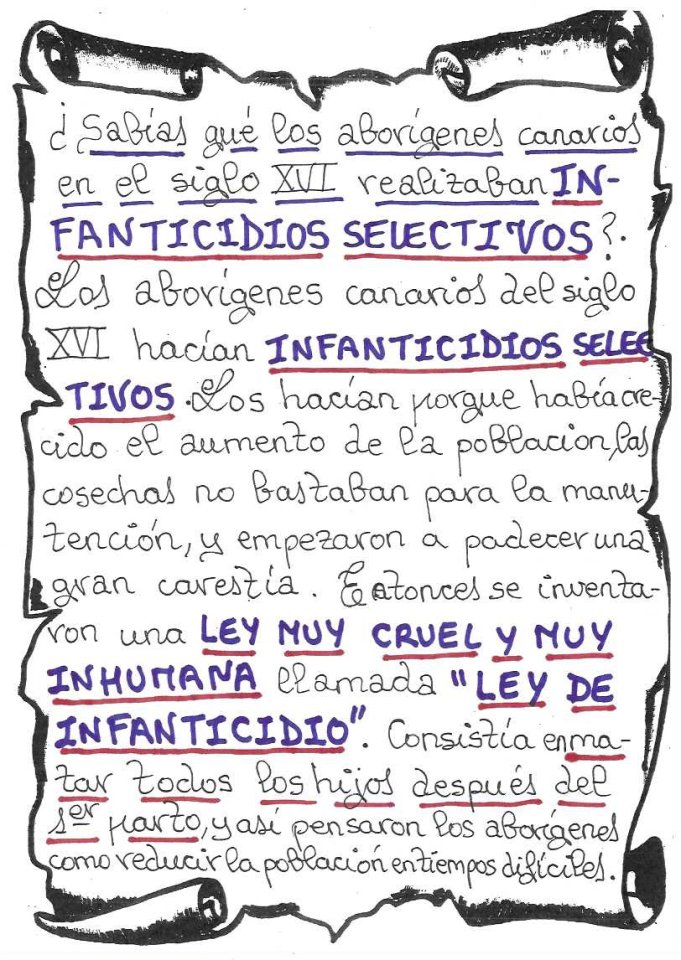 ¿Sabías qué los aborígenes canarios
en el siglo XVI realizaban IN-
FANTICIDIOS SELECTIVOS?.
Los aborígenes canarios del siglo
XVI hacían INFANTICIDIOS SELEC
TIVOS. Los hacían porque había cre-
cido el aumento de la población, las
cosechas no bastaban para la manu-
tención, y empezaron a padecer una
gran carestía. Entonces se inventa-
ron una LEY MUY CRUEL Y MUY
INHUMANA llamada "LEY DE
INFANTICIDIO". Consistía en ma-
tar todos los hijos después del
1er parto, y así pensaron los aborígenes
como reducir la población en tiempos difíciles.